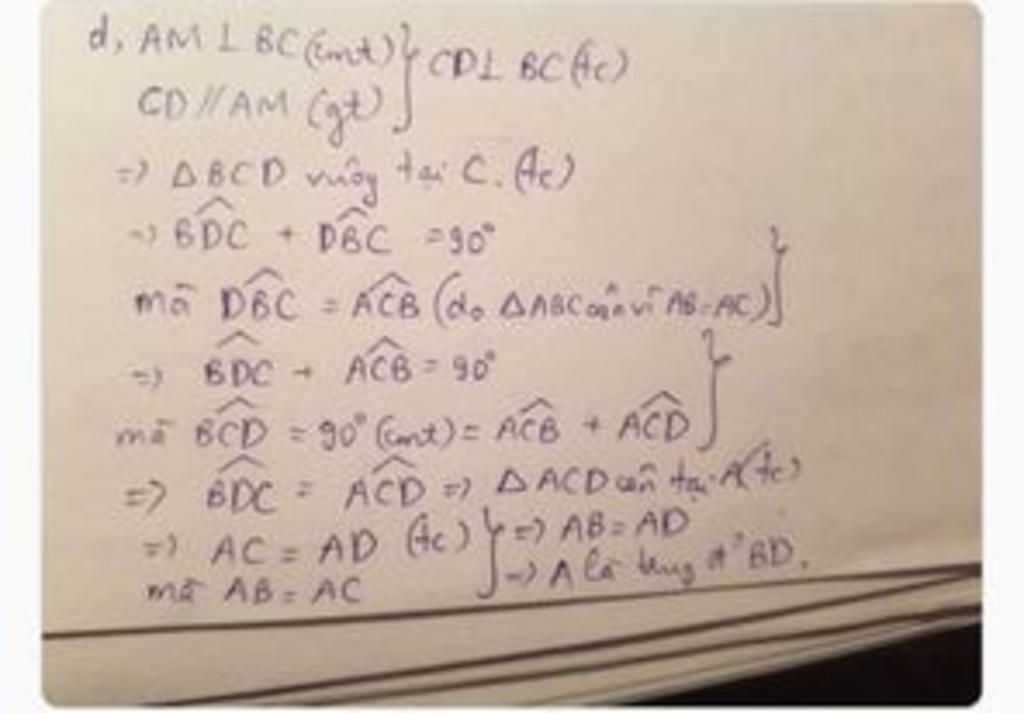 d, AM ⊥ BC (cmt) } CD ⊥ BC (tc)
CD // AM (gt)
=> ΔBCD vuông tại C. (tc)
=> \widehat{BDC} + \widehat{DBC} = 90°
mà \widehat{DBC} = \widehat{ACB} (do ΔABC cân vì AB = AC) }
=> \widehat{BDC} + \widehat{ACB} = 90° }
mà \widehat{BCD} = 90° (cmt) = \widehat{ACB} + \widehat{ACD}
=> \widehat{BDC} = \widehat{ACD} => ΔACD cân tại A (tc)
=> AC = AD (tc) } => AB = AD
mà AB = AC => A là trung đ² BD.